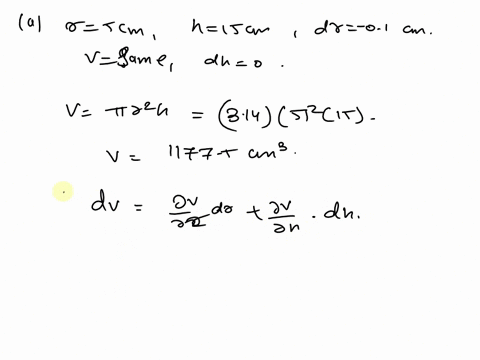 (a) r=5cm, h=15cm, dr=-0.1 cm.
V=Same, dh=0.
V= πr²h = (3.14)(5)²(15).
V= 1177.5 cm³.
dv = ∂v/∂r dr + ∂v/∂h · dh.